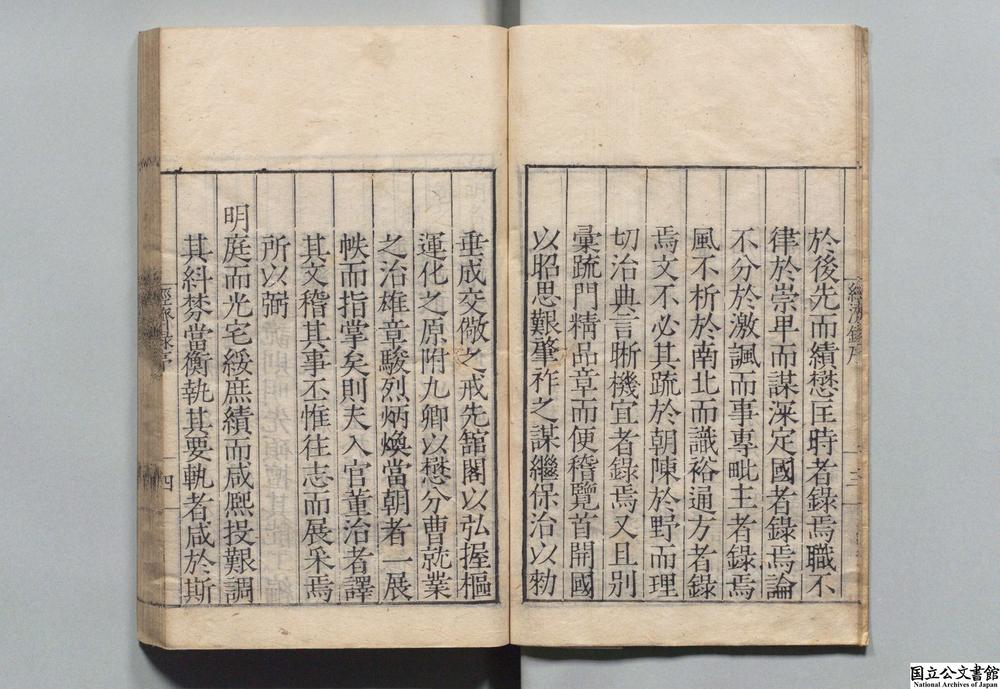 於後先而績懋匡時者錄焉職不
律於崇卑而謀深定國者錄焉論
不分於激諷而事專毗主者錄焉
風不析於南北而識裕通方者錄
焉文不必其疏於朝陳於野而理
切治典言晣機宜者錄焉又且別
彙疏門精品章而便稽覽首開國
以昭思艱肇祚之謀繼保治以勑
垂成交儆之戒先舘閣以弘握樞
運化之原附九卿以懋分曹就業
之治雄章駿烈炳煥當朝者一展
帙而指掌矣則夫入官董治者譯
其文稽其事丕惟往志而展采焉
所以弼
明庭而光宅綏庶績而咸熈投艱調
其糾棼當衡執其要執者咸於斯
經濟錄序
三
經濟錄序
四
国立公文書館
National Archives of Japan